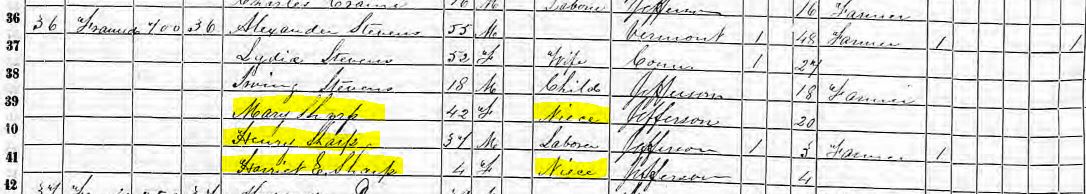 Charles Crains 16 M Laborer Jefferson 16 Farmer
36 36 Framed 700 36 Alexander Stevens 55 M Vermont 1 48 Farmer 1 1
37 Lydia Stevens 52 F Wife Conn 1 27
38 Irving Stevens 18 M Child Jefferson 18 Farmer
39 Mary Sharp 42 F Niece Jefferson 20
10 Henry Sharp 37 M Laborer Jefferson 1 3 Farmer 1
41 Harriet E. Sharp 4 F Niece Jefferson 4
12 37